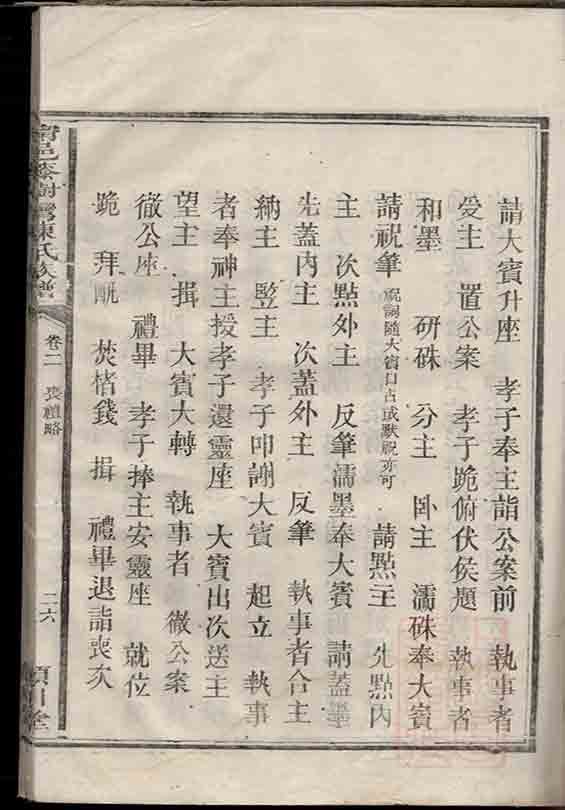 請大賓升座　孝子奉主詣公案前　執事者
受主　置公案　孝子跪俯伏侯題　執事者
和墨　研硃　分主　卧主　濡硃奉大賓
請祝筆　祝詞隨大賓口占或默祝亦可　請點主　先點內
主　次點外主　反筆濡墨奉大賓　請蓋墨
先蓋內主　次蓋外主　反筆　執事者合主
納主　竪主　孝子叩謝大賓　起立　執事
者奉神主授孝子還靈座　大賓出次送主
望主　揖　大賓大轉　執事者　徹公案
徹公座　禮畢　孝子捧主安靈座　就位
跪　拜　酰　焚楮錢　揖　禮畢退詣喪次
陳氏族譜
卷二　喪禮略
二六
川堂